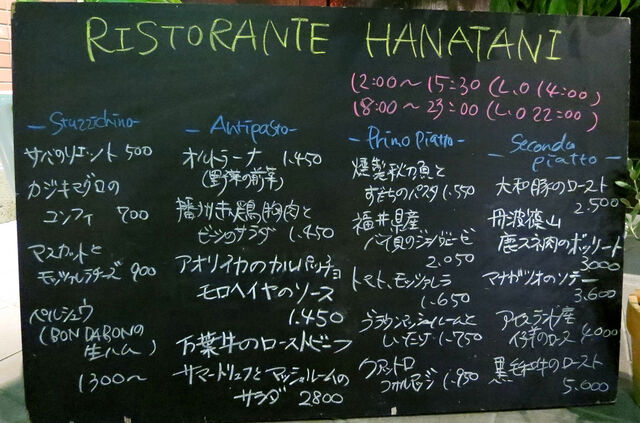 RISTORANTE HANATANI
12:00〜15:30 (L.O 14:00)
18:00〜23:00 (L.O 22:00)
- Stuzzichino -
サバのリエット 500
カジキマグロの
コンフィ 700
マスカットと
モッツァレラチーズ 900
ペルシュウ
(BON DABONの
生ハム)
1300〜
- Antipasto -
オルトラーナ 1.450
(野菜の前菜)
播州赤鶏胸肉と
ビーンズのサラダ 1.450
アオリイカのカルパッチョ
モロヘイヤのソース
1.450
万葉牛のローストビーフ
サマートリュフとマッシュルームの
サラダ 2800
- Primo piatto -
燻製秋刀魚と
すだちのパスタ 1.550
福井県産
バイ貝のジェノベーゼ
2.050
トマト、モッツァレラ
1.650
ブラウンマッシュルームと
1.750
クアットロ
フォルマッジ 1.950
- Secondo
piatto -
大和豚のロースト
2.500
丹波篠山
鹿スネ肉のボッリート
3000
マナガツオのソテー
3.600
アイスランド産
仔羊のロース 4.000
黒毛和牛のロースト
5.000